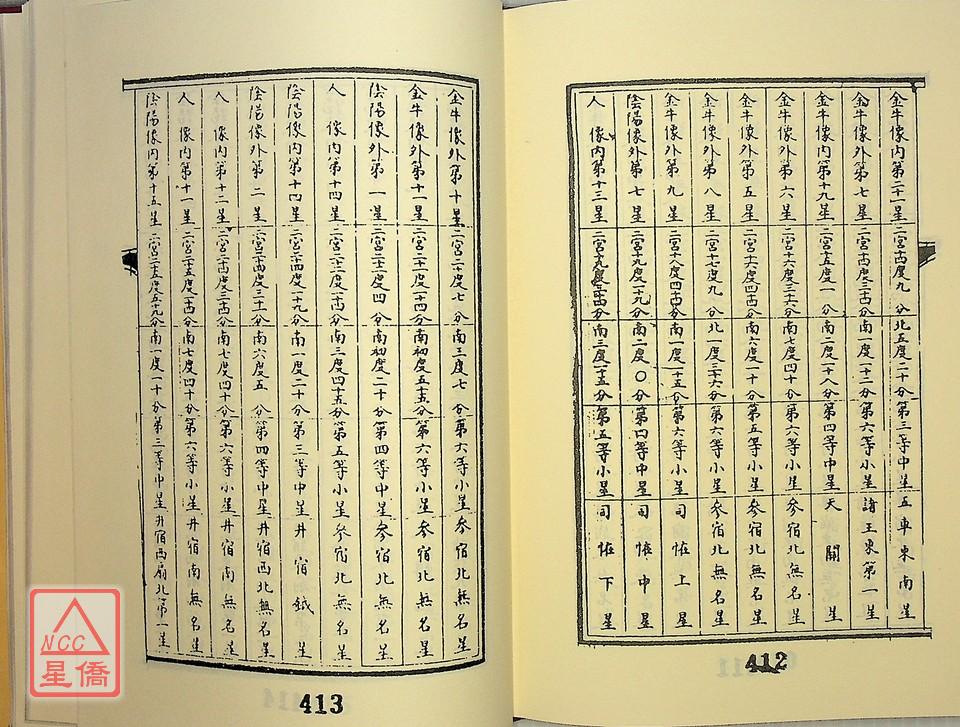 金牛像內第二十一星 二宮十六度九分 北五度二十分 第三等中星 五車東南星
金牛像外第七星 南一度一十二分 第六等小星 諸王東第一星
金牛像內第十九星 二宮十五度一分 南二度一十八分 第四等中星 天關星
金牛像外第六星 二宮十六度三十六分 南七度四十分 第六等小星 參宿北無名星
金牛像外第五星 南六度一十分 第五等小星 參宿北無名星
金牛像外第八星 二宮十七度九分 北一度三十六分 第六等小星 參宿北無名星
金牛像外第九星 南一度一十五分 第六等小星 司怪上星
陰陽像外第七星 二宮十九度一十九分 南二度〇分 第四等中星 司怪中星
人像內第十三星 南三度一十五分 第五等小星 司怪下星
412
金牛像外第十星 二宮二十度七分 南三度七分 第六等小星 參宿北無名星
金牛像外第十一星 南初度五十五分 第六等小星 參宿北無名星
陰陽像外第一星 二宮二十一度四分 南初度二十分 第四等中星 參宿北無名星
人像內第十四星 南三度四十五分 第五等小星 參宿北無名星
陰陽像內第十四星 二宮二十四度一十九分 南一度二十分 第三等中星 井宿鉞星
陰陽像外第二星 二宮二十四度三十一分 南六度五分 第四等中星 井宿西北無名星
人像內第十二星 南七度四十分 第六等小星 井宿南無名星
人像內第十一星 南七度四十分 第六等小星 井宿南無名星
陰陽像內第十五星 二宮二十五度五十九分 南一度一十分 第三等中星 井宿西扇北第一星
413
NCC
星僑